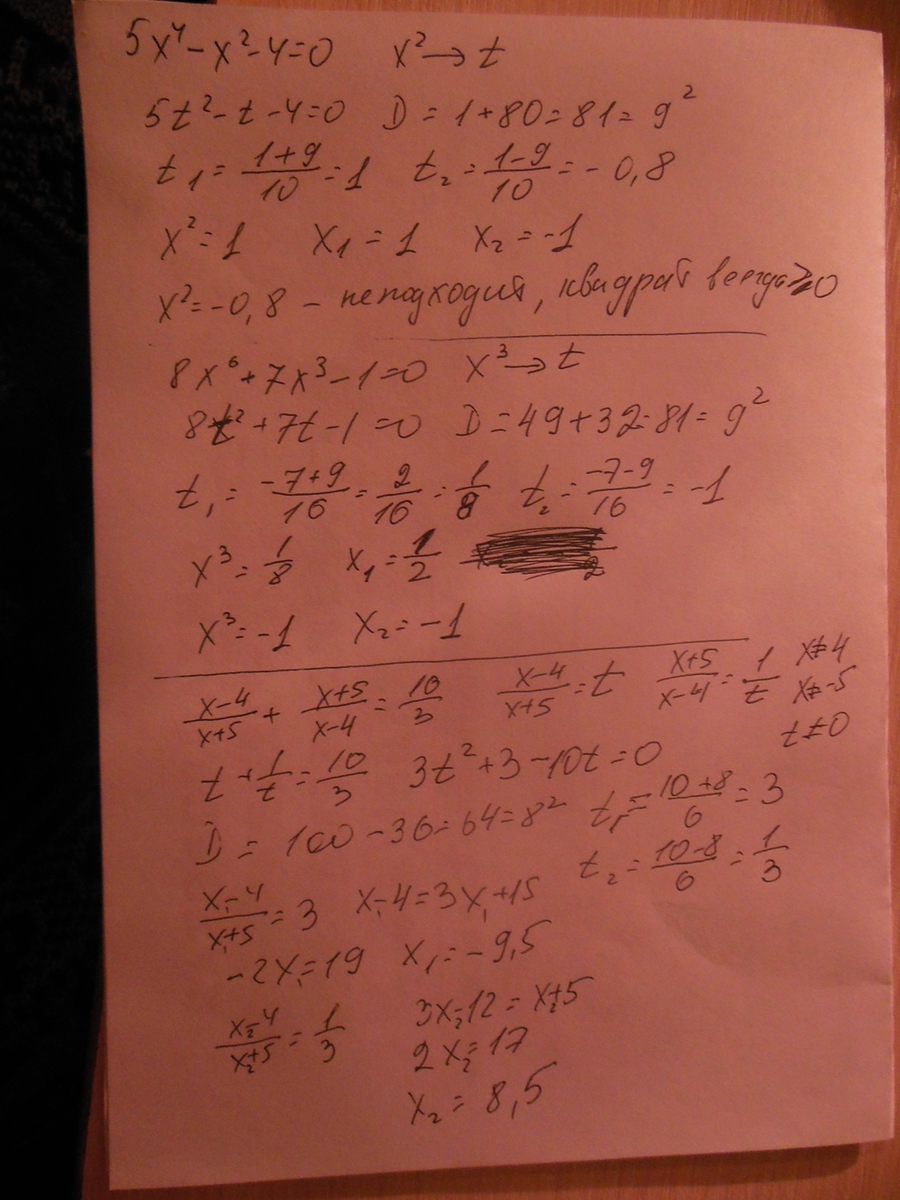 5x⁴ - x² - 4 = 0 x² → t
5t² - t - 4 = 0 D = 1 + 80 = 81 = 9²
t₁ = (1+9)/10 = 1 t₂ = (1-9)/10 = -0,8
x² = 1 x₁ = 1 x₂ = -1
x² = -0,8 - не подходит, квадрат всегда ≥ 0
8x⁶ + 7x³ - 1 = 0 x³ → t
8t² + 7t - 1 = 0 D = 49 + 32 = 81 = 9²
t₁ = (-7+9)/16 = 2/16 = 1/8 t₂ = (-7-9)/16 = -1
x³ = 1/8 x₁ = 1/2
x³ = -1 x₂ = -1
(x-4)/(x+5) + (x+5)/(x-4) = 10/3 (x-4)/(x+5) = t (x+5)/(x-4) = 1/t x ≠ 4
x ≠ -5
t ≠ 0
t + 1/t = 10/3 3t² + 3 - 10t = 0
D = 100 - 36 = 64 = 8² t₁ = (10+8)/6 = 3
t₂ = (10-8)/6 = 1/3
(x₁-4)/(x₁+5) = 3 x₁-4 = 3x₁+15
-2x₁ = 19 x₁ = -9,5
(x₂-4)/(x₂+5) = 1/3 3x₂-12 = x₂+5
2x₂ = 17
x₂ = 8,5